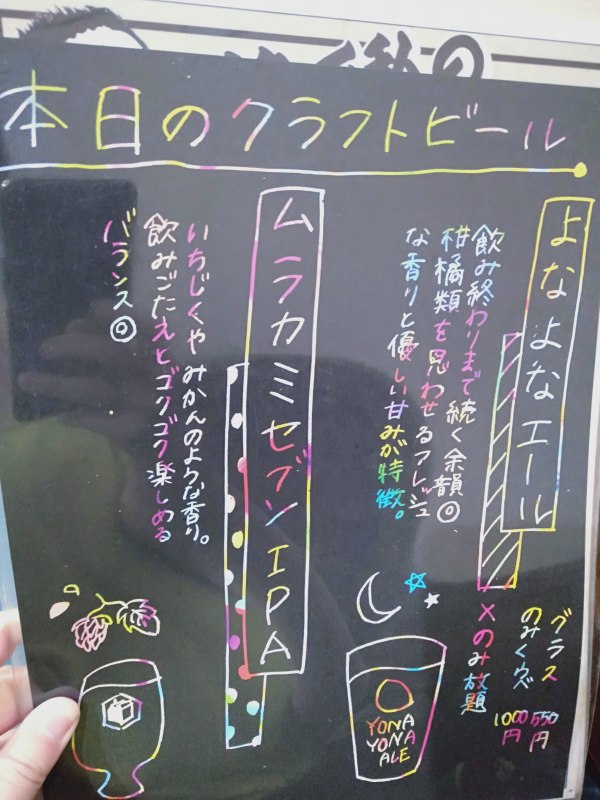 本日のクラフトビール
よなよなエール
飲み終わりまで続く余韻◎
柑橘類を思わせるフレッシュ
な香りと優しい甘みが特徴。
グラス 550円
のみくらべ 1000円
×のみ放題
YONA
YONA
ALE
ムラカミセブンIPA
いちじくやみかんのような香り。
飲みごたえとゴクゴク楽しめる
バランス◎